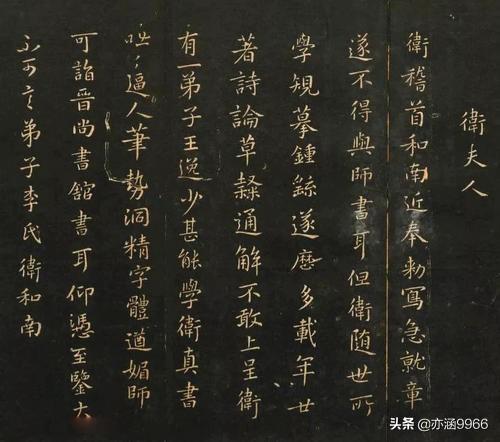 衛夫人
衛稽首和南近奉勅寫急就章
遂不得與師書耳但衛隨世所
學規摹鍾繇遂歷多載年廿
著詩論草隸通解不敢上呈衛
有一弟子王逸少甚能學衛真書
咄〻逼人筆勢洞精字體遒媚師
可詣晉尚書館書耳仰憑至鑒大
不可言弟子李氏衛和南
头条 @亦涵9966